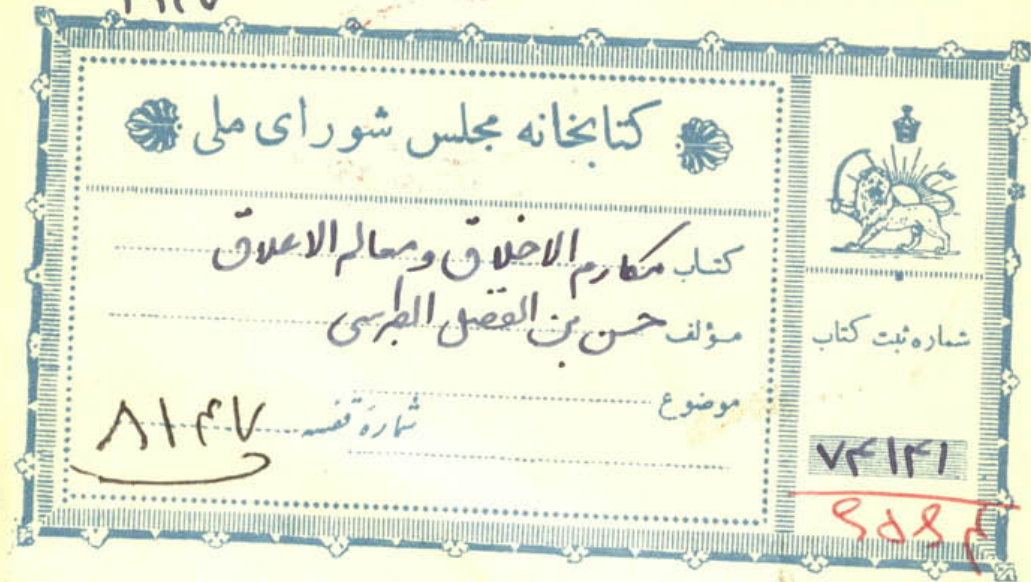 کتابخانه مجلس شورای ملی
کتاب مکارم الاخلاق و معالم الاعلاق
مؤلف حسن بن الفضل الطبرسی
موضوع
شمارهٔ قفسه ۸۱۴۷
شماره ثبت کتاب
۷۴۱۴۱